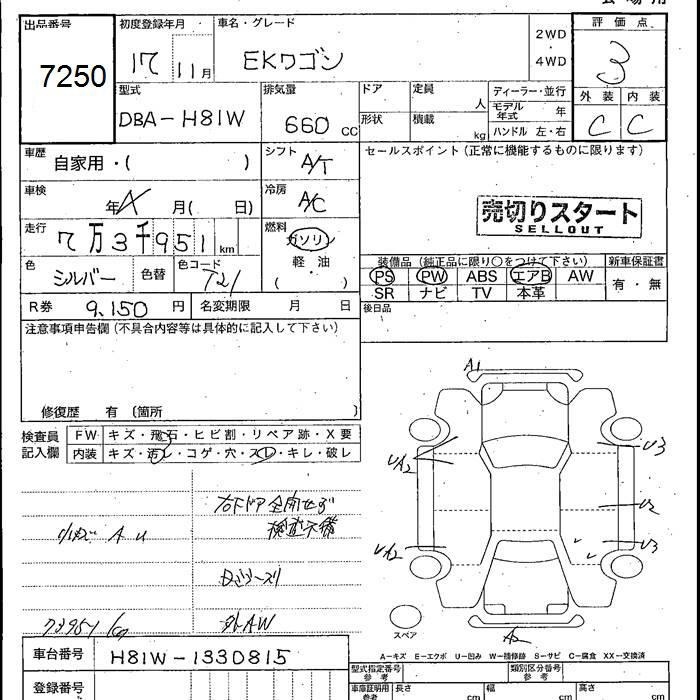 出品番号 7250
初度登録年月 17 11月
車名・グレード EKワゴン
2WD ・ 4WD
評価点 3
外装 内装
C C
型式 DBA-H81W
排気量 660 CC
ドア 定員 人
形状 積載 kg
ディーラー・並行
モデル年式 年
ハンドル 左・右
車歴 自家用・( )
シフト A/T
セールスポイント(正常に機能するものに限ります)
車検 年 月( 日)
冷房 A/C
売切りスタート
SELLOUT
走行 7万3千951 km
燃料 ガソリン
軽・油
( )
色 シルバー 色替 色コード T21
装備品(純正品に限り○をつけて下さい) 新車保証書
PS PW ABS エアB AW 有・無
SR ナビ TV 本革
R券 9,150 円 名変期限 月 日
後日品
注意事項申告欄(不具合内容等は具体的に記入して下さい)
修復歴 有(箇所 )
検査員記入欄
FW キズ・飛石・ヒビ割・リペア跡・X要
内装 キズ・汚レ・コゲ・穴・スレ・キレ・破レ
A1
UA2
U3
U2
UA2
U3
A2
右Fドア全開せず
検査不備
A U
外AW
スペア
A―キズ E―エクボ U―凹み W―補修跡 S―サビ C―腐食 XX―交換済
車台番号 H81W-1330815
型式指定番号 参考 類別区分番号 参考
登録番号
車庫証明用 参考 長さ cm 幅 cm 高さ cm